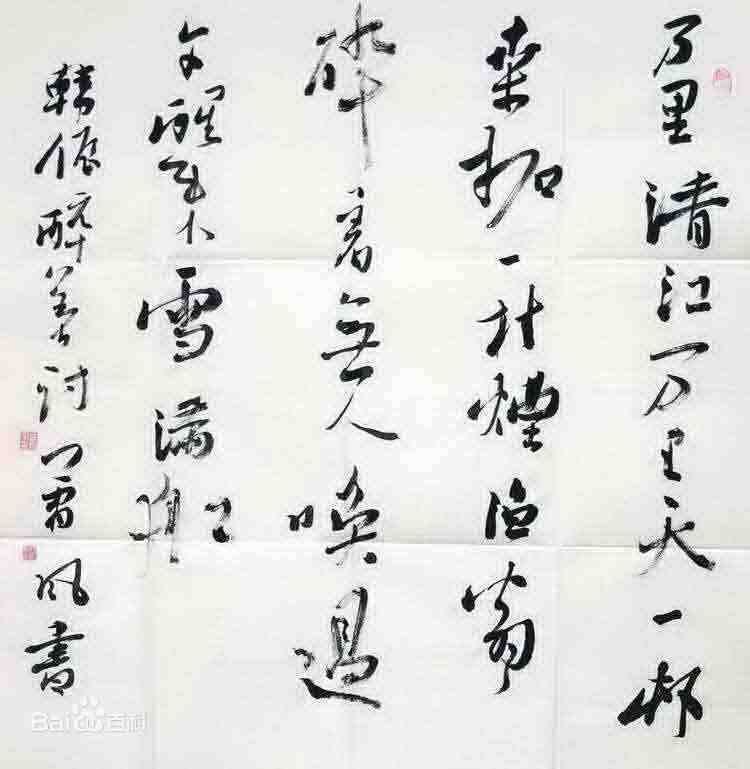 万里清江万里天一邨
桑柘一村煙渔翁
醉着無人唤過
午醒来雪满船
韩偓醉着诗 风書
Bai百科